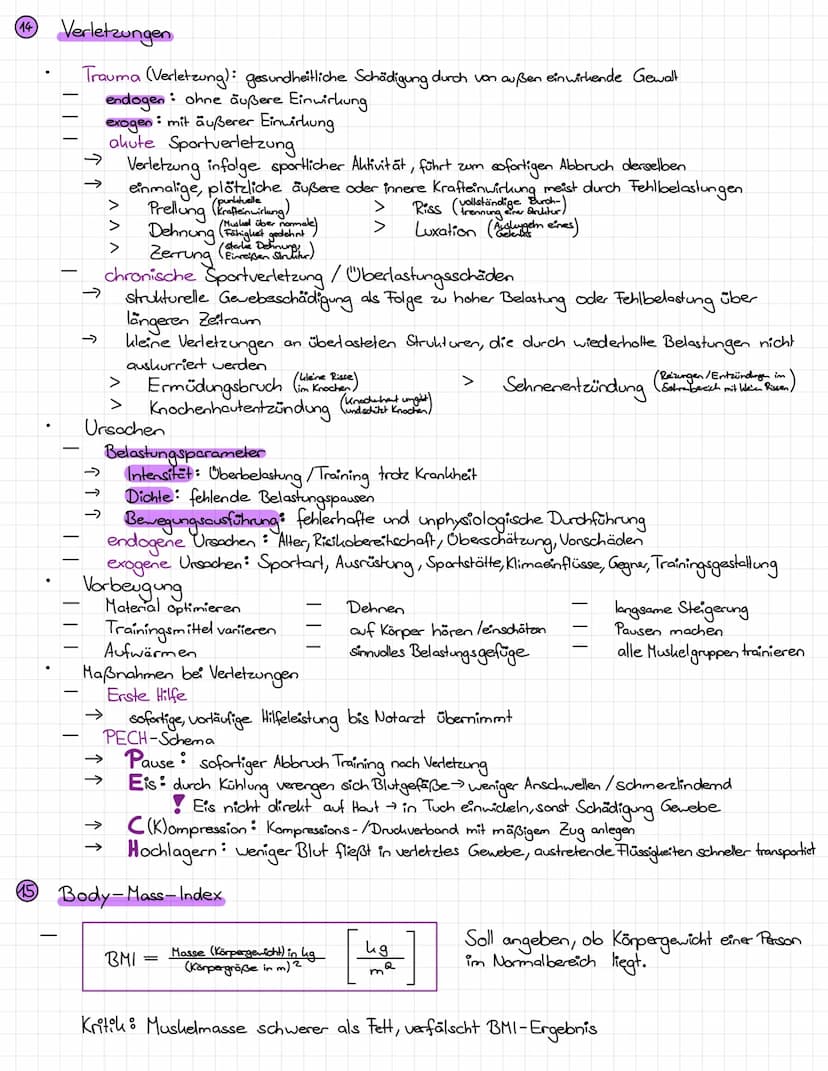 14 Verletzungen
• Trauma (Verletzung): gesundheitliche Schädigung durch von außen einwirkende Gewalt
— endogen: ohne äußere Einwirkung
— exogen: mit äußerer Einwirkung
— akute Sportverletzung
→ Verletzung infolge sportlicher Aktivität, führt zum sofortigen Abbruch derselben
→ einmalige, plötzliche äußere oder innere Krafteinwirkung meist durch Fehlbelastungen
> Prellung (punktuelle Krafteinwirkung) > Riss (vollständige Durchtrennung einer Struktur)
> Dehnung (Muskel über normale Fähigkeit gedehnt) > Luxation (Auskugeln eines Gelenks)
> Zerrung (starke Dehnung, Einreißen Struktur)
— chronische Sportverletzung / Überlastungsschäden
→ strukturelle Gewebsschädigung als Folge zu hoher Belastung oder Fehlbelastung über
längeren Zeitraum
→ kleine Verletzungen an überlasteten Strukturen, die durch wiederholte Belastungen nicht
auskurriert werden
> Ermüdungsbruch (kleine Risse im Knochen) > Sehnenentzündung (Reizungen/Entzündungen im Sehnenbereich mit klein Rissen)
> Knochenhautentzündung (Knochenhaut umgibt und schützt Knochen)
• Ursachen
— Belastungsparameter
→ Intensität: Überbelastung / Training trotz Krankheit
→ Dichte: fehlende Belastungspausen
→ Bewegungsausführung: fehlerhafte und unphysiologische Durchführung
— endogene Ursachen: Alter, Risikobereitschaft, Überschätzung, Vorschäden
— exogene Ursachen: Sportart, Ausrüstung, Sportstätte, Klimaeinflüsse, Gegner, Trainingsgestaltung
• Vorbeugung
— Material optimieren — Dehnen — langsame Steigerung
— Trainingsmittel variieren — auf Körper hören /einschätzen — Pausen machen
— Aufwärmen — sinnvolles Belastungsgefüge — alle Muskelgruppen trainieren
• Maßnahmen bei Verletzungen
— Erste Hilfe
→ sofortige, vorläufige Hilfeleistung bis Notarzt übernimmt
— PECH-Schema
→ Pause: sofortiger Abbruch Training nach Verletzung
→ Eis: durch Kühlung verengen sich Blutgefäße → weniger Anschwellen / schmerzlindernd
! Eis nicht direkt auf Haut → in Tuch einwickeln, sonst Schädigung Gewebe
→ C(K)ompression: Kompressions-/Druckverband mit mäßigem Zug anlegen
→ Hochlagern: weniger Blut fließt in verletztes Gewebe, austretende Flüssigkeiten schneller transportiet
15 Body-Mass-Index
— BMI = Masse (Körpergewicht) in kg / (Körpergröße in m)² [kg / m²] Soll angeben, ob Körpergewicht einer Person
im Normalbereich liegt.
Kritik: Muskelmasse schwerer als Fett, verfälscht BMI-Ergebnis